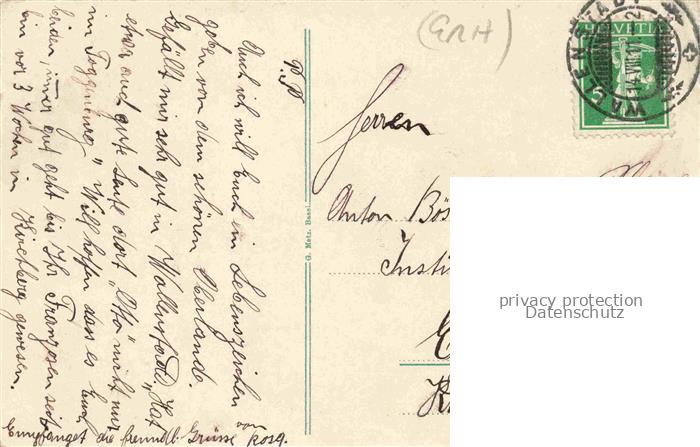 P. P.
Auch ich will Euch ein Lebenszeichen
geben von dem schönen Oberlande.
Gefällt mir sehr gut in Wallenstadt. „Hat
etwa auch gute Leute dort „Otto" nicht nur
im Toggenburg." Will hoffen dass es Euch
beiden, immer gut geht bis Ihr Franzosen seit
bin vor 3 Wochen in Kirchberg gewesen.
Empfanget die freundl. Grüsse von Rosa.
G. Metz, Basel
(GRH)
HELVETIA
WALENSTADT
14.VII.11
Herren
Anton Bös
Insti
privacy protection
Datenschutz